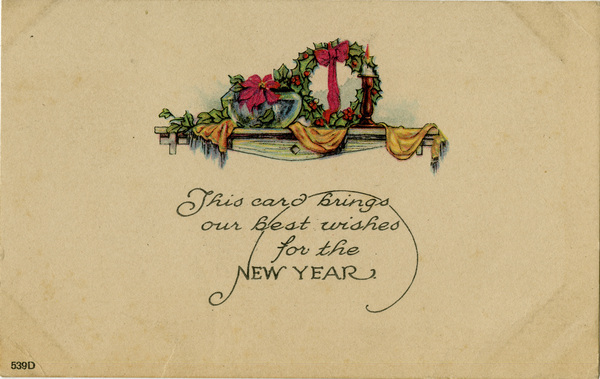 This card brings
our best wishes
for the
NEW YEAR.
539D